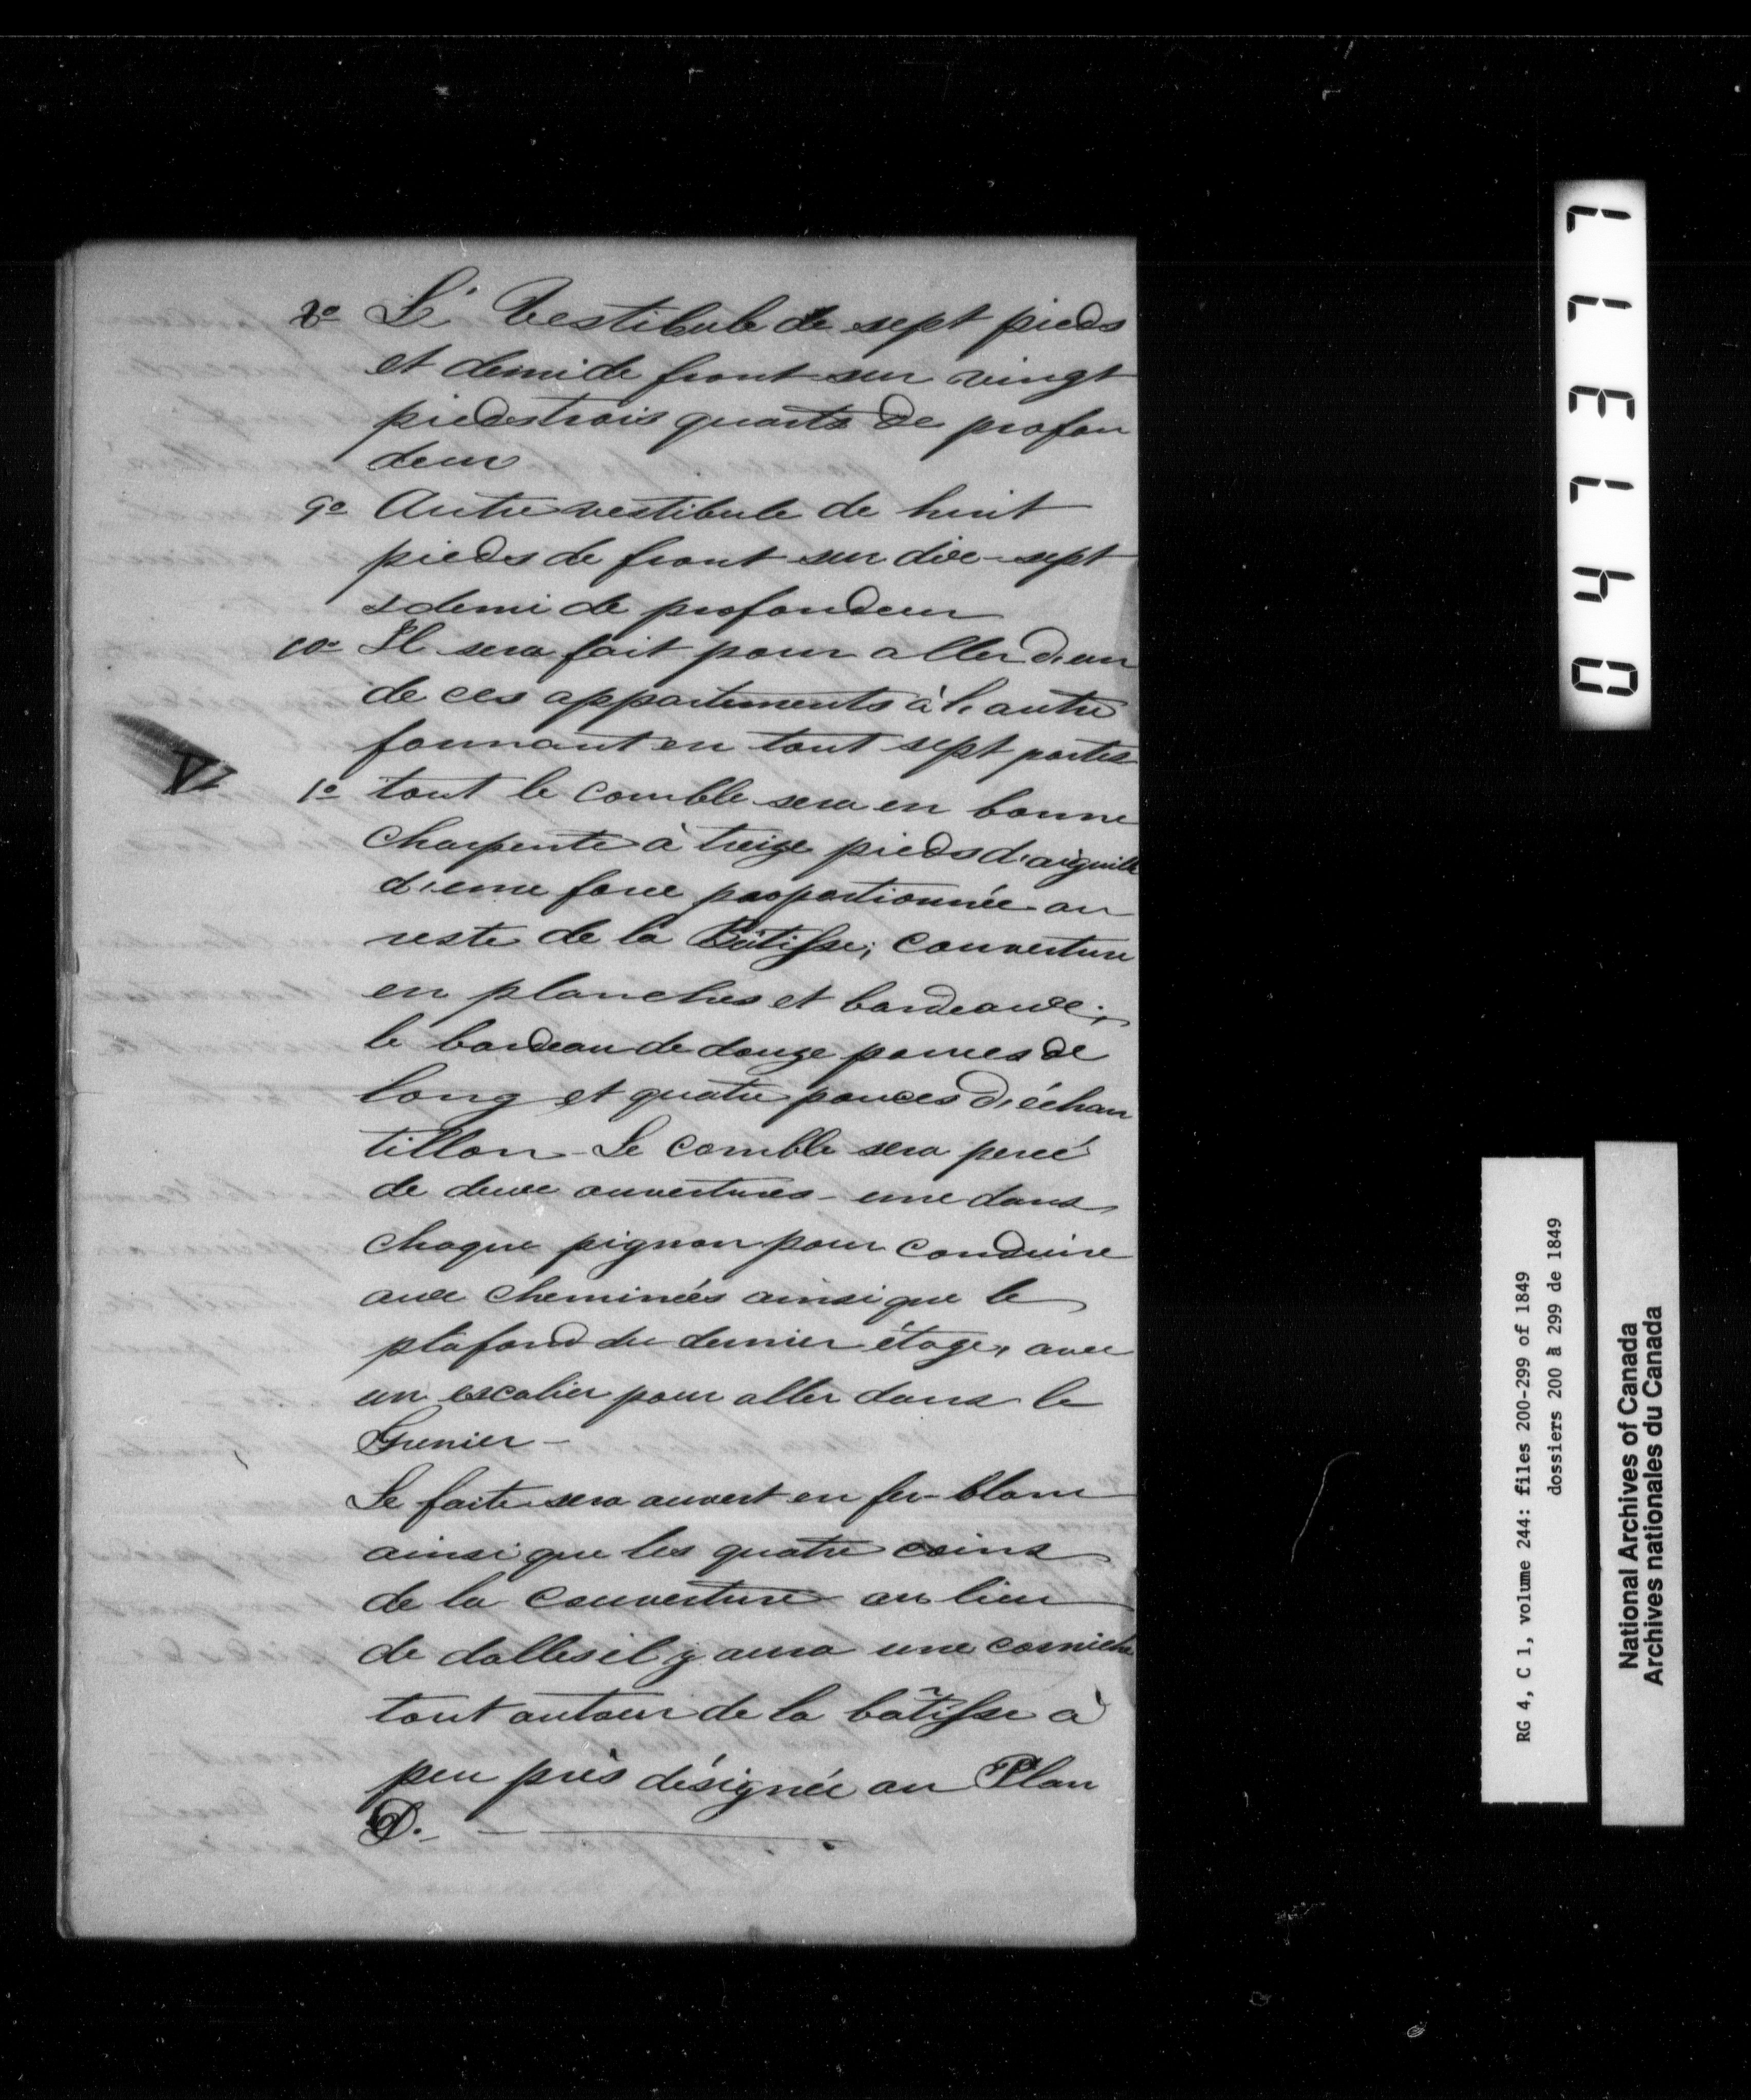 8º Le Vestibule de sept pieds
et demi de front sur vingt
pieds trois quarts de profon
deur
9º Autre vestibule de huit
pieds de front sur dix-sept
& demi de profondeur
10º Il sera fait pour aller d'un
de ces appartements à l'autre
formant en tout sept portes
V
1º tout le comble sera en bonne
charpente à treize pieds d'aiguille
d'une force proportionnée au
reste de la Bâtisse; couverture
en planches et bardeaux;
le bardeau de douze pouces de
long et quatre pouces d'échan
tillon - Le comble sera percé
de deux ouvertures - une dans
chaque pignon pour conduire
aux cheminées ainsi que le
plafond du dernier étage, avec
un escalier pour aller dans le
Grenier -
Le faite sera couvert en fer-blanc
ainsi que les quatre coins
de la couverture au lieu
de dalles il y aura une corniche
tout autour de la bâtisse à
peu près désignée au Plan
D. -
047377
RG 4, C 1, volume 244: files 200-299 of 1849
dossiers 200 à 299 de 1849
National Archives of Canada
Archives nationales du Canada